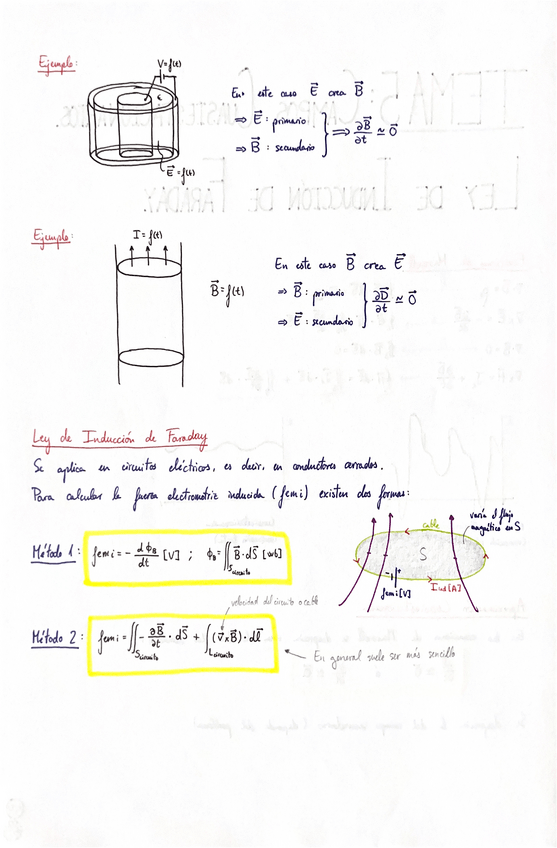 Ejemplo:
V=f(t)
ε
E⃗=f(t)
En este caso E⃗ crea B⃗
⇒ E⃗ : primario
⇒ B⃗ : secundario
⇒ ∂B⃗/∂t ≃ 0⃗
Ejemplo:
I=f(t)
B⃗=f(t)
En este caso B⃗ crea E⃗
⇒ B⃗ : primario
⇒ E⃗ : secundario
∂D⃗/∂t ≃ 0⃗
Ley de Inducción de Faraday
Se aplica en circuitos eléctricos, es decir, en conductores cerrados.
Para calcular la fuerza electromotriz inducida (femi) existen dos formas:
Método 1: femi = - dϕ_B/dt [V] ; ϕ_B = ∬_S circuito B⃗·dS⃗ [wb]
cable
varía el flujo
magnético en S
S
- +
femi [V]
I ind [A]
velocidad del circuito o cable
Método 2: femi = ∬_S circuito - ∂B⃗/∂t · dS⃗ + ∫_L circuito (v⃗×B⃗)·dl⃗
En general suele ser más sencillo